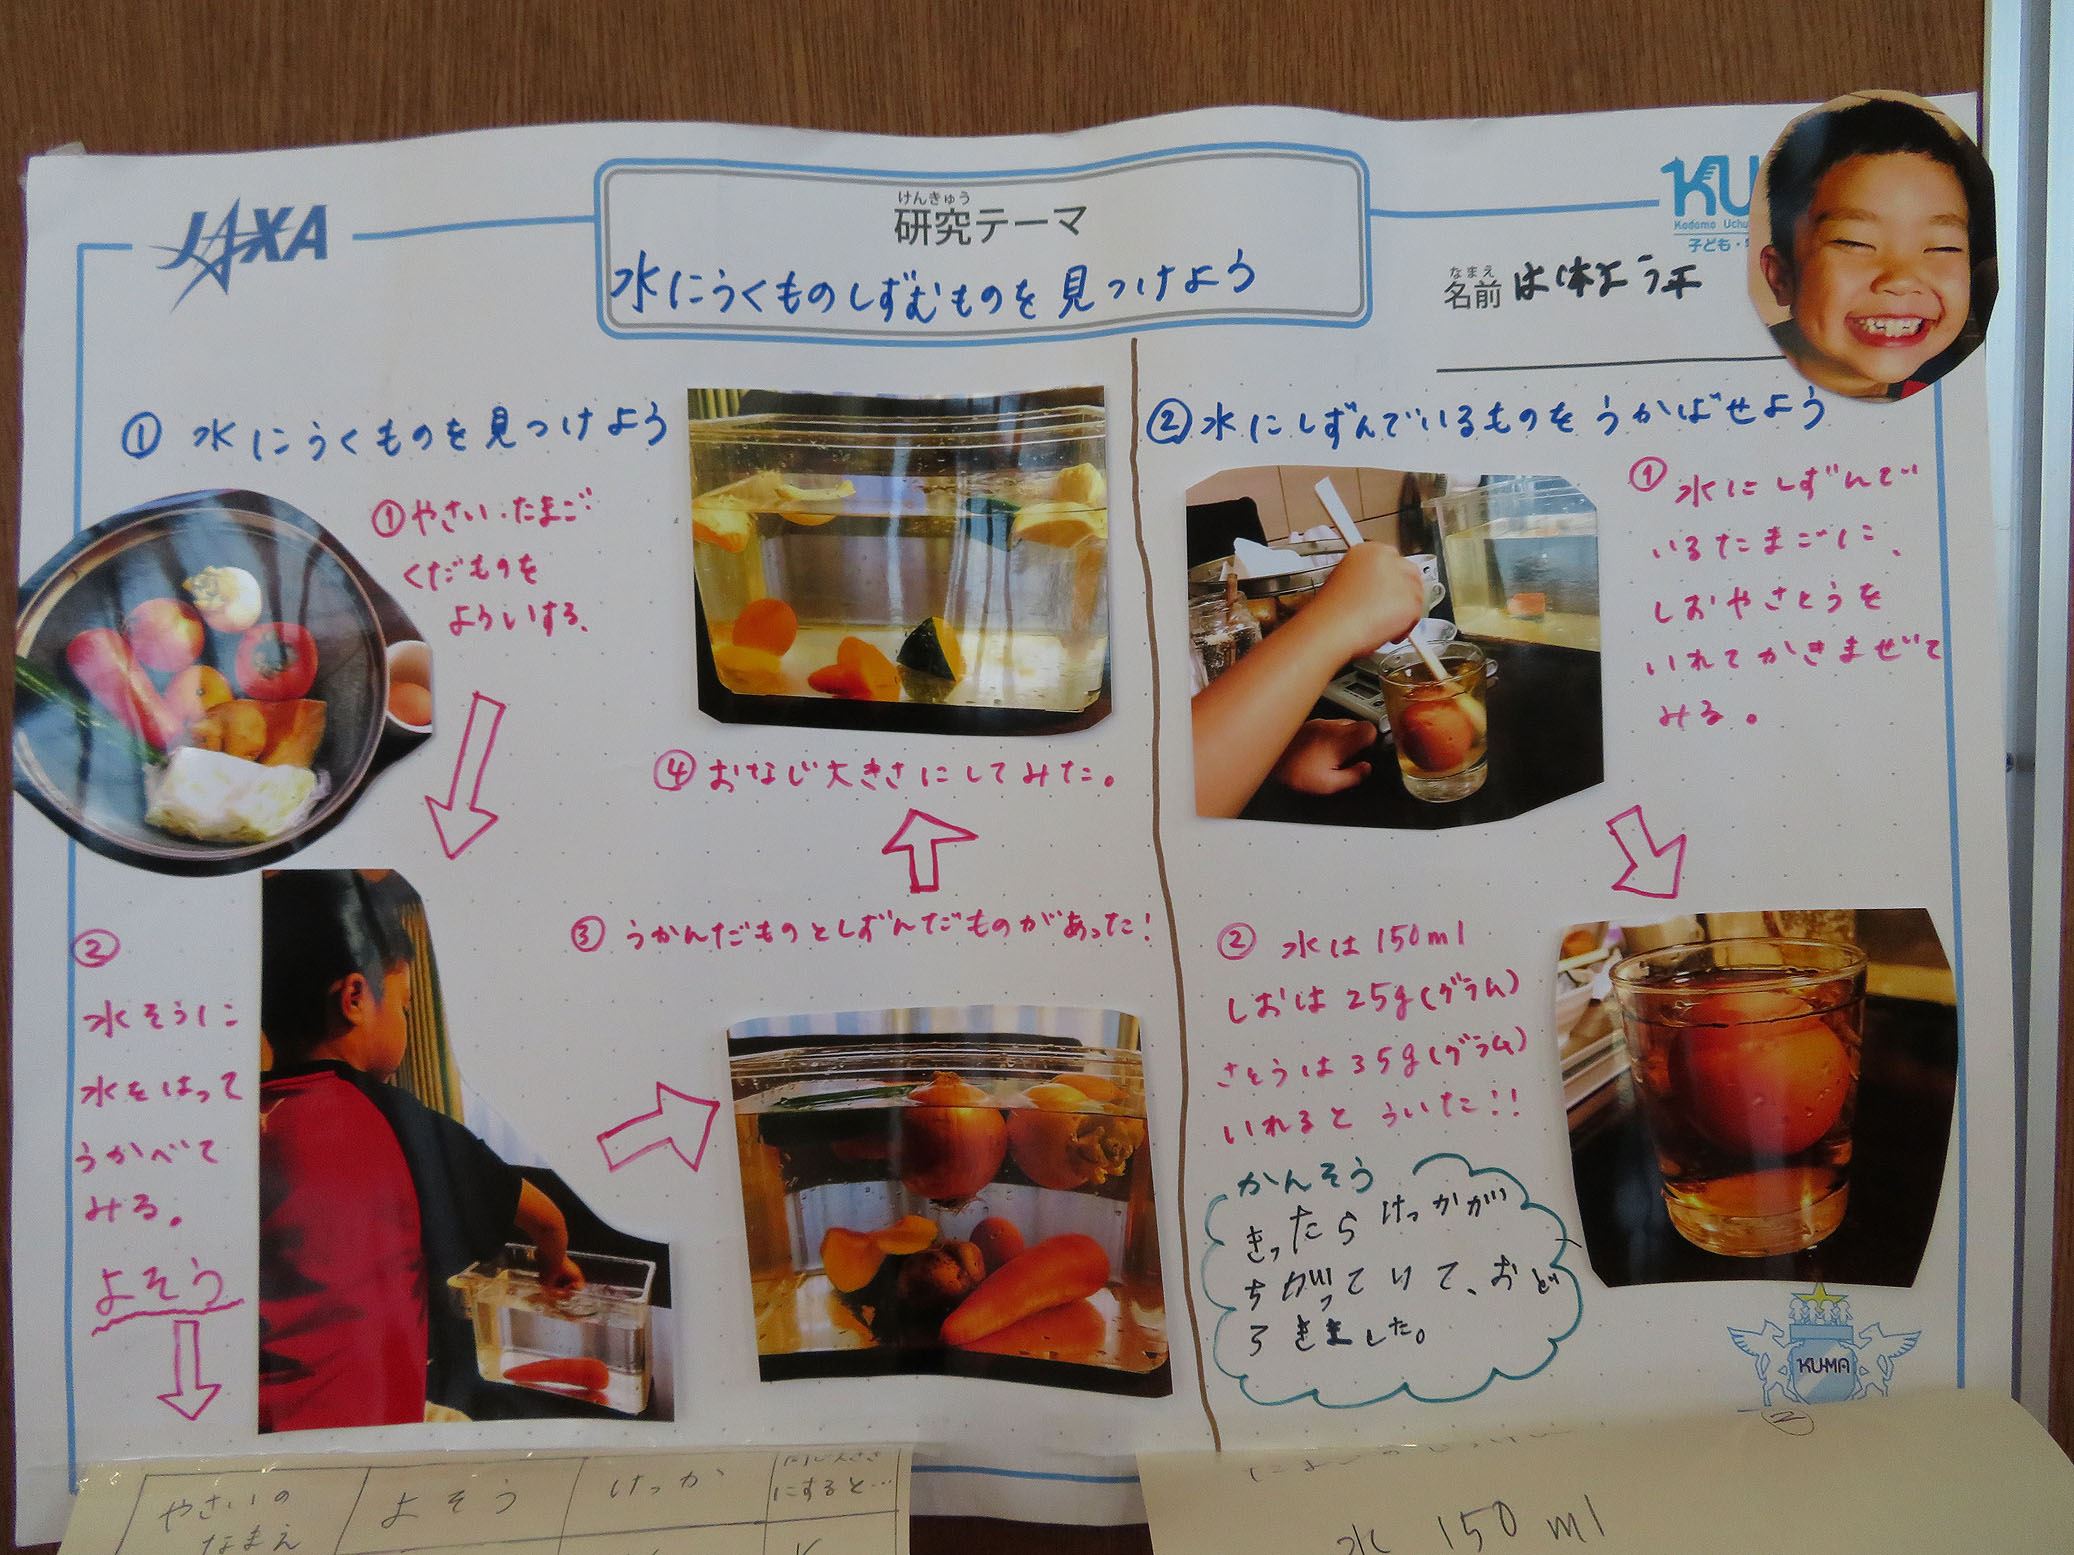 JAXA
けんきゅう
研究テーマ
水にうくものしずむものを見つけよう
KU
Kodomo Uchu
子ども・
なまえ
名前
① 水にうくものを見つけよう
①やさい・たまご
くだものを
よういする。
②
水そうに
水をはって
うかべて
みる。
よそう
③ うかんだものとしずんだものがあった!
④ おなじ大きさにしてみた。
② 水にしずんでいるものをうかばせよう
① 水にしずんで
いるたまごに、
しおやさとうを
いれてかきまぜて
みる。
② 水は150ml
しおは25g(グラム)
さとうは35g(グラム)
いれるとういた!!
かんそう
きったらけっかが
ちがっていて、おど
ろきました。
KU-MA
やさいの
なまえ
よそう
けっか
にすると…
②
水 150ml